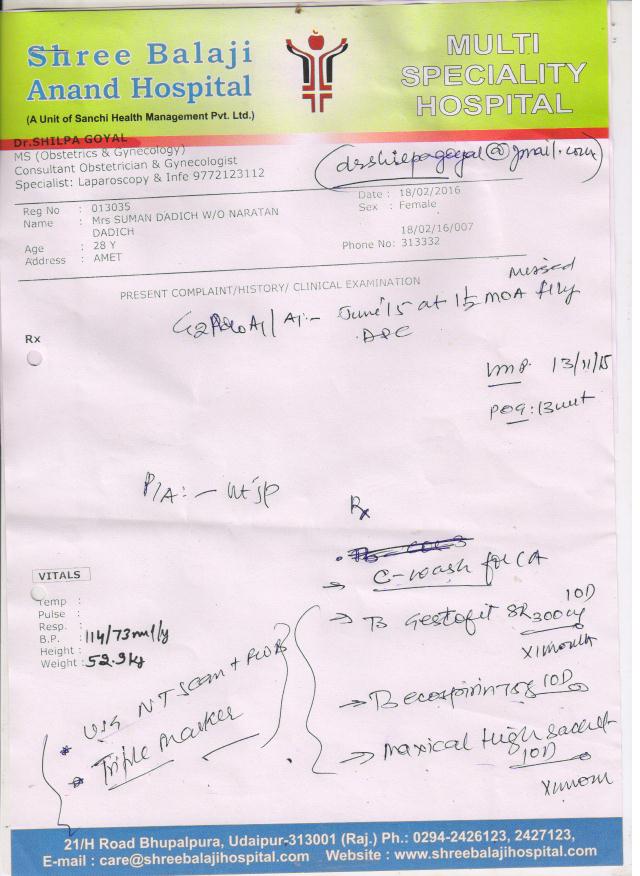 Shree Balaji
Anand Hospital
(A Unit of Sanchi Health Management Pvt. Ltd.)
MULTI
SPECIALITY
HOSPITAL
Dr.SHILPA GOYAL
MS (Obstetrics & Gynecology)
Consultant Obstetrician & Gynecologist
Specialist: Laparoscopy & Infe 9772123112
drshilpagoyal@gmail.com
Reg No : 013035
Name : Mrs SUMAN DADICH W/O NARATAN
DADICH
Age : 28 Y
Address : AMET
Date : 18/02/2016
Sex : Female
18/02/16/007
Phone No: 313332
PRESENT COMPLAINT/HISTORY/ CLINICAL EXAMINATION
missed
June'15 at 1½ MOA
D&C
Rx
LMP. 13/11/15
POG:
P/A:-
Rx
C-wash for CA
→ T3 Gestofit SR 300 10D
X1month
→ ecosprin 75 10D
→ Maxical High sachet
10D
X1month
VITALS
Temp :
Pulse :
Resp. :
B.P. : 114/73
Height :
Weight : 52.9kg
* USG NT Scan +
* Triple Marker
21/H Road Bhupalpura, Udaipur-313001 (Raj.) Ph.: 0294-2426123, 2427123,
E-mail : care@shreebalajihospital.com Website : www.shreebalajihospital.com